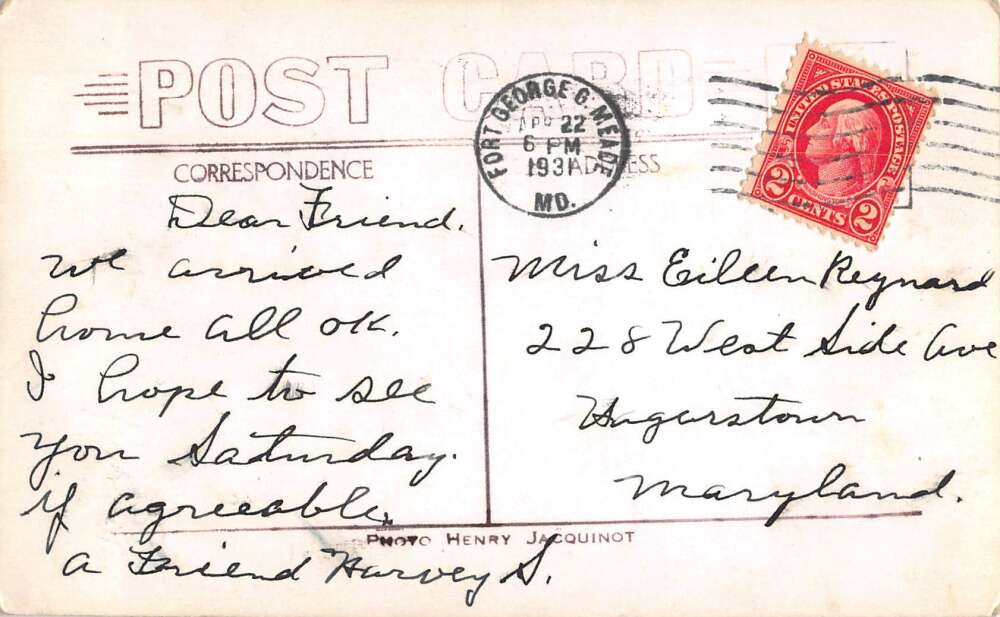 POST CARD
FORT GEORGE G. MEADE
APR 22
6 PM
1931
MD.
UNITED STATES POSTAGE
2 CENTS 2
CORRESPONDENCE
ADDRESS
Dear Friend.
We arrived
home all ok.
I hope to see
you Saturday.
if agreeable.
a Friend Harvey S.
Miss Eileen Reynard
228 West Side Ave
Hagerstown
Maryland.
PHOTO HENRY JACQUINOT